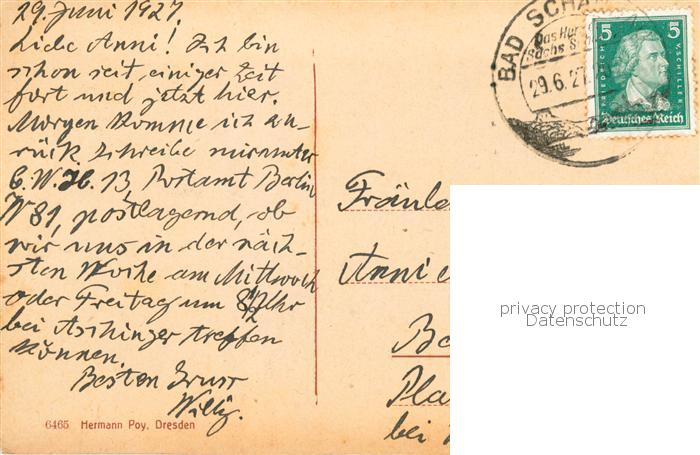 29. Juni 1927.
Liebe Anni! Ich bin
schon seit einiger Zeit
fort und jetzt hier.
Morgen komme ich zu-
rück. Schreibe mir unter
C. W. 13, Postamt Berlin
W 81, postlagernd, ob
wir uns in der näch-
sten Woche am Mittwoch
oder Freitag um 8½ Uhr
bei Aschinger treffen
können.
Besten Gruss
Willy.
6465 Hermann Poy, Dresden
BAD SCHAN
Das Her
Sächs. Sch
29.6.27
5 5
FRIEDRICH V. SCHILLER
Deutsches Reich
Fräule
Anni
Be
Pla
bei
privacy protection
Datenschutz